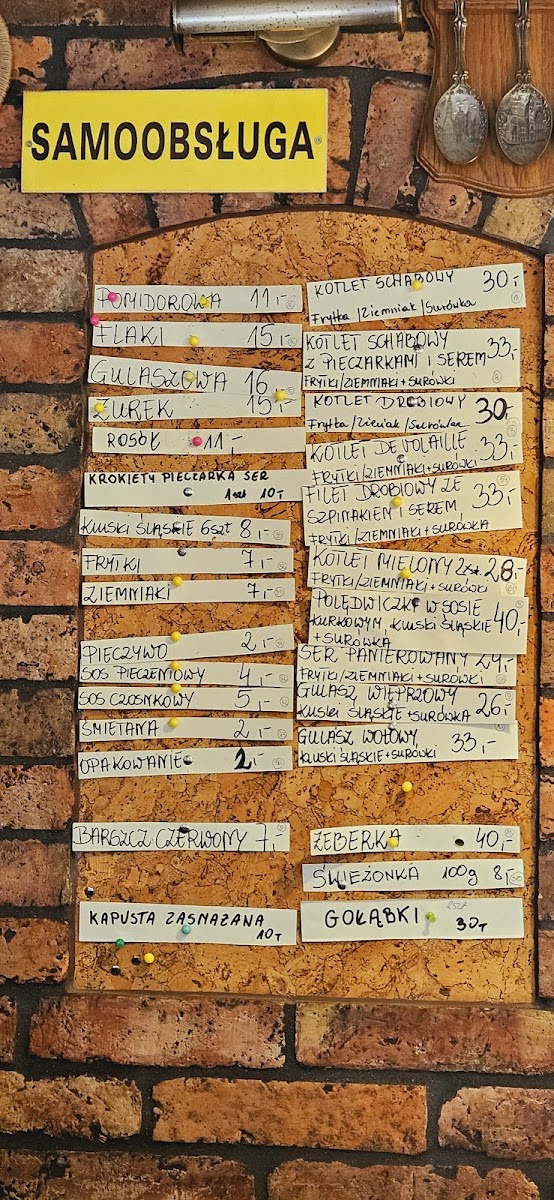 SAMOOBSŁUGA
POMIDOROWA 11,-
FLAKI 15,-
GULASZOWA 16,-
ŻUREK 15,-
ROSÓŁ 11,-
KROKIETY PIECZARKA SER
1szt 10,-
KLUSKI ŚLĄSKIE 6szt 8,-
FRYTKI 7,-
ZIEMNIAKI 7,-
PIECZYWO 2,-
SOS PIECZENIOWY 4,-
SOS CZOSNKOWY 5,-
ŚMIETANA 2,-
OPAKOWANIE 2,-
BARSZCZ CZERWONY 7,-
KAPUSTA ZASMAŻANA
10,-
KOTLET SCHABOWY 30,-
Frytka/Ziemniak/Surówka
KOTLET SCHABOWY
Z PIECZARKAMI I SEREM 33,-
FRYTKI/ZIEMNIAKI+SURÓWKI
KOTLET DROBIOWY 30,-
Frytka/Ziemiak/Surówka
KOTLET DE VOLAILLE 33,-
FRYTKI/ZIEMNIAKI+SURÓWKI
FILET DROBIOWY ZE
SZPINAKIEM I SEREM 33,-
FRYTKI/ZIEMNIAKI+SURÓWKA
KOTLET MIELONY 2szt. 28,-
FRYTKI/ZIEMNIAKI+SURÓWKI
POLĘDWICZKI W SOSIE
KURKOWYM KLUSKI ŚLĄSKIE 40,-
+SURÓWKA
SER PANIEROWANY 29,-
FRYTKI/ZIEMNIAKI+SURÓWKI
GULASZ WIEPRZOWY 26,-
KLUSKI ŚLĄSKIE+SURÓWKA
GULASZ WOŁOWY 33,-
KLUSKI ŚLĄSKIE+SURÓWKI
ŻEBERKA 40,-
ŚWIEŻONKA 100g 8,-
GOŁĄBKI 2szt
30,-